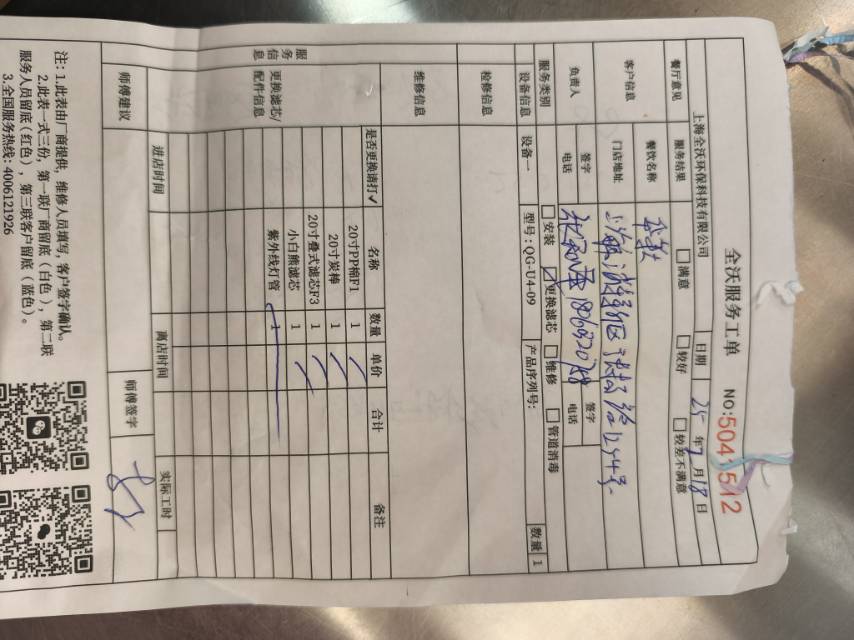 全沃服务工单 NO:5041512
上海全沃环保科技有限公司 日期 25 年 7 月 18 日
餐厅意见 服务结果 □满意 □较好 □较差不满意
客户信息 餐饮名称
门店地址
负责人 签字 签字
电话 电话
服务类别 □安装 ☑更换滤芯 □维修 □管道消毒
设备信息 设备一 型号：QG-U4-09 产品序列号： 数量 1
检修信息
维修信息
服务信息
更换滤芯/配件信息
是否更换请打✓ 名称 数量 单价 合计 备注
20寸PP棉F1 1
20寸炭棒 1
20寸叠式滤芯F3 1
小白熊滤芯 1
紫外线灯管 1
进店时间 离店时间 实际工时
师傅建议 师傅签字
注：1.此表由厂商提供，维修人员填写，客户签字确认。
2.此表一式三份，第一联厂商留底（白色），第二联
服务人员留底（红色），第三联客户留底（蓝色）。
3.全国服务热线：4006121926